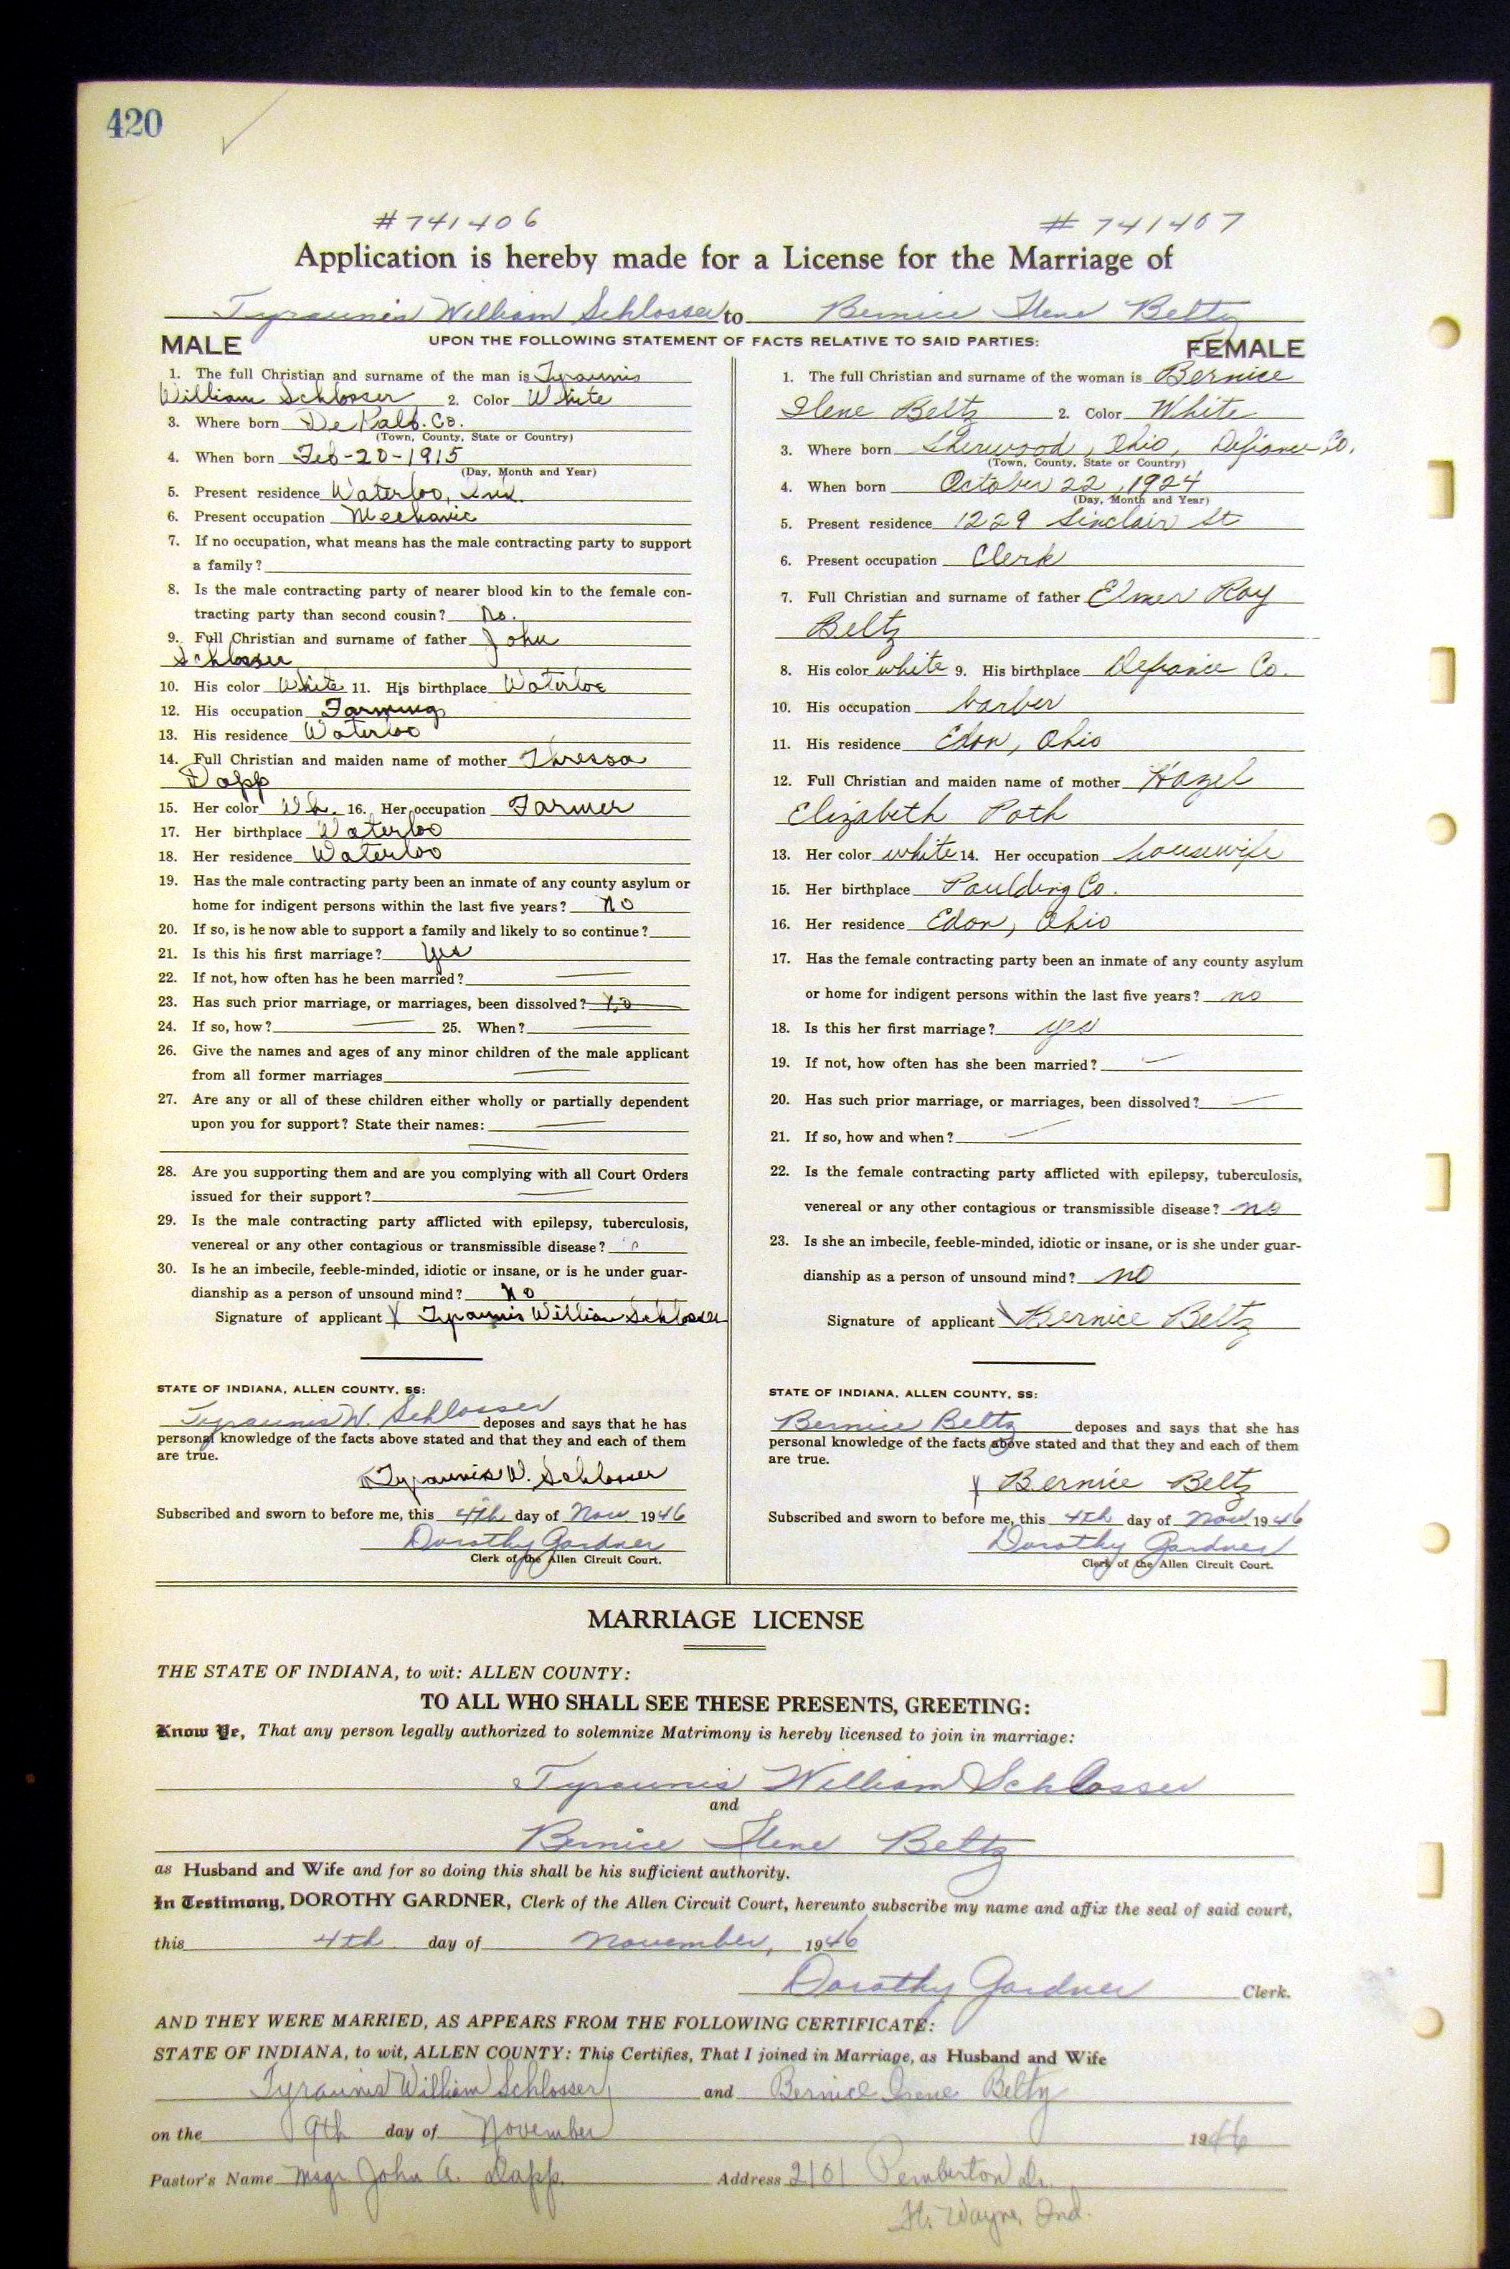 420
#741406 #741407
Application is hereby made for a License for the Marriage of
Tyraunis William Schlosser to Bernice Ilene Beltz
MALE UPON THE FOLLOWING STATEMENT OF FACTS RELATIVE TO SAID PARTIES: FEMALE
1. The full Christian and surname of the man is Tyraunis
William Schlosser 2. Color White
3. Where born De Kalb. Co.
(Town, County, State or Country)
4. When born Feb-20-1915
(Day, Month and Year)
5. Present residence Waterloo, Ind.
6. Present occupation Mechanic
7. If no occupation, what means has the male contracting party to support
a family?
8. Is the male contracting party of nearer blood kin to the female con-
tracting party than second cousin? No.
9. Full Christian and surname of father John
Schlosser
10. His color White 11. His birthplace Waterloo
12. His occupation Farming
13. His residence Waterloo
14. Full Christian and maiden name of mother Thressa
Dapp
15. Her color Wh. 16. Her occupation Farmer
17. Her birthplace Waterloo
18. Her residence Waterloo
19. Has the male contracting party been an inmate of any county asylum or
home for indigent persons within the last five years? no
20. If so, is he now able to support a family and likely to so continue?
21. Is this his first marriage? Yes
22. If not, how often has he been married?
23. Has such prior marriage, or marriages, been dissolved? No
24. If so, how? 25. When?
26. Give the names and ages of any minor children of the male applicant
from all former marriages
27. Are any or all of these children either wholly or partially dependent
upon you for support? State their names:
28. Are you supporting them and are you complying with all Court Orders
issued for their support?
29. Is the male contracting party afflicted with epilepsy, tuberculosis,
venereal or any other contagious or transmissible disease?
30. Is he an imbecile, feeble-minded, idiotic or insane, or is he under guar-
dianship as a person of unsound mind? No
Signature of applicant X Tyraunis William Schlosser
STATE OF INDIANA, ALLEN COUNTY, SS:
Tyraunis W. Schlosser deposes and says that he has
personal knowledge of the facts above stated and that they and each of them
are true.
X Tyraunis W. Schlosser
Subscribed and sworn to before me, this 4th day of Nov 1946
Dorothy Gardner
Clerk of the Allen Circuit Court.
1. The full Christian and surname of the woman is Bernice
Ilene Beltz 2. Color White
3. Where born Sherwood, Ohio, Defiance Co.
(Town, County, State or Country)
4. When born October 22, 1924
(Day, Month and Year)
5. Present residence 1229 Sinclair St
6. Present occupation Clerk
7. Full Christian and surname of father Elmer Roy
Beltz
8. His color white 9. His birthplace Defiance Co.
10. His occupation barber
11. His residence Edon, Ohio
12. Full Christian and maiden name of mother Hazel
Elizabeth Poth
13. Her color white 14. Her occupation housewife
15. Her birthplace Paulding Co.
16. Her residence Edon, Ohio
17. Has the female contracting party been an inmate of any county asylum
or home for indigent persons within the last five years? no
18. Is this her first marriage? yes
19. If not, how often has she been married?
20. Has such prior marriage, or marriages, been dissolved?
21. If so, how and when?
22. Is the female contracting party afflicted with epilepsy, tuberculosis,
venereal or any other contagious or transmissible disease? no
23. Is she an imbecile, feeble-minded, idiotic or insane, or is she under guar-
dianship as a person of unsound mind? no
Signature of applicant X Bernice Beltz
STATE OF INDIANA, ALLEN COUNTY, SS:
Bernice Beltz deposes and says that she has
personal knowledge of the facts above stated and that they and each of them
are true.
X Bernice Beltz
Subscribed and sworn to before me, this 4th day of Nov. 1946
Dorothy Gardner
Clerk of the Allen Circuit Court.
MARRIAGE LICENSE
THE STATE OF INDIANA, to wit: ALLEN COUNTY:
TO ALL WHO SHALL SEE THESE PRESENTS, GREETING:
Know Ye, That any person legally authorized to solemnize Matrimony is hereby licensed to join in marriage:
Tyraunis William Schlosser
and
Bernice Ilene Beltz
as Husband and Wife and for so doing this shall be his sufficient authority.
In Testimony, DOROTHY GARDNER, Clerk of the Allen Circuit Court, hereunto subscribe my name and affix the seal of said court,
this 4th day of November, 1946
Dorothy Gardner Clerk.
AND THEY WERE MARRIED, AS APPEARS FROM THE FOLLOWING CERTIFICATE:
STATE OF INDIANA, to wit, ALLEN COUNTY: This Certifies, That I joined in Marriage, as Husband and Wife
Tyraunis William Schlosser and Bernice Irene Beltz
on the 9th day of November 1946
Pastor's Name Msgr John A. Dapp. Address 2101 Pemberton Dr.
Ft. Wayne, Ind.